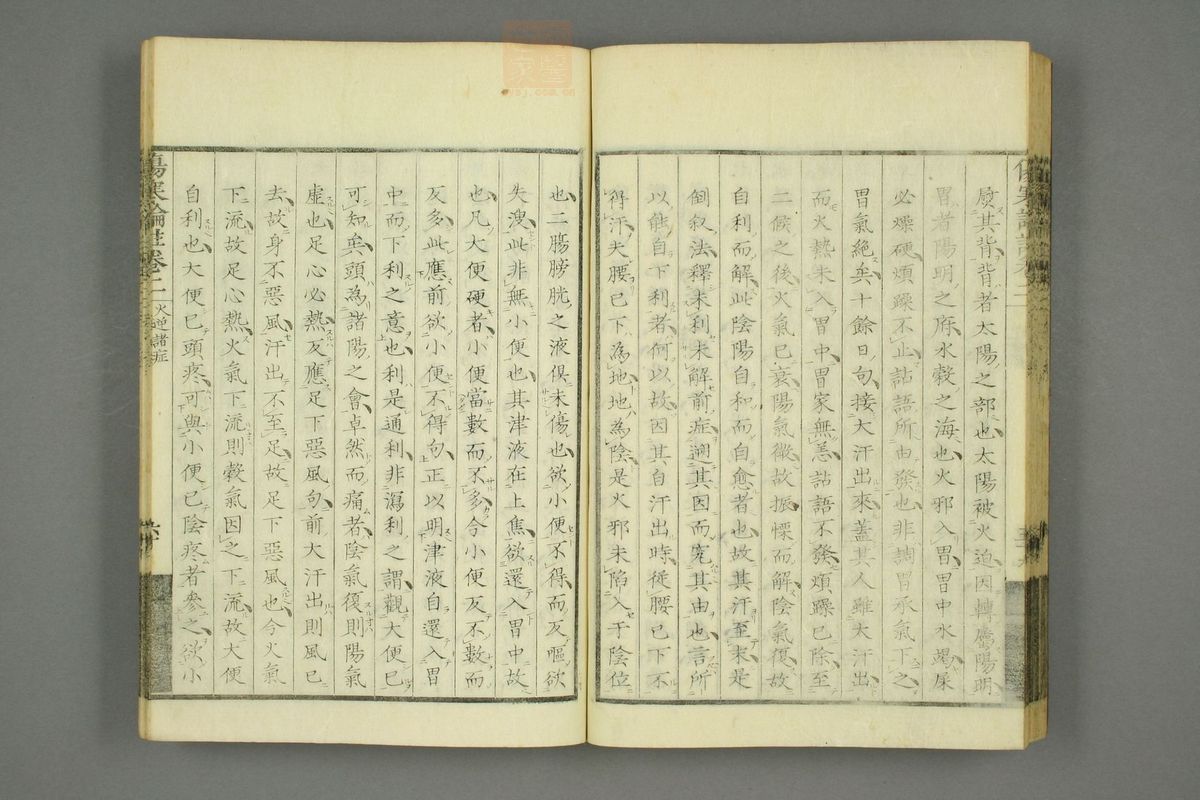 熨其背背者太陽之部也太陽被火迫因轉屬陽明
胃者陽明之府水穀之海也火邪入胃胃中水竭屎
必燥硬煩躁不止詀語所由發也非調胃承氣下之
胃氣絕矣十餘日句接大汗出來蓋其人雖大汗出
而火熱未入胃中胃家無恙詀語不發煩躁已除至
二候之後火氣已衰陽氣微故振慄而解陰氣復故
自利而解此陰陽自和而自愈者也故其汗至末是
倒叙法釋未利未解前症遡其因而究其由也言所
以能自下利者何以故因其自汗出時從腰已下不
得汗夫腰已下為地地為陰是火邪未陷入于陰位
也二腸膀胱之液俱未傷也欲小便不得而反嘔欲
失溲此非無小便也其津液在上焦欲還入胃中故
也凡大便硬者小便當數而不多今小便反不數而
反多此應前欲小便不得句正以明津液自還入胃
中而下利之意也利是通利非瀉利之謂觀大便已
可知矣頭為諸陽之會卓然而痛者陰氣復則陽氣
虛也足心必熱反應足下惡風句前大汗出則風已
去故身不惡風汗出不至足故足下惡風也今火氣
下流故足心熱火氣下流則穀氣因之下流故大便
自利也大便已頭疼可與小便已陰疼者參之欲小
傷寒論註卷之二
火逆諸症